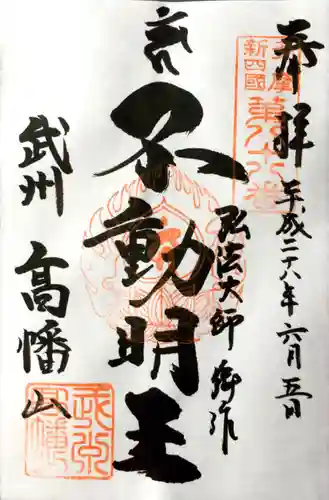 奉拝
平成二十八年六月五日
弘法大師御作
不動明王
武州 高幡山
新四國